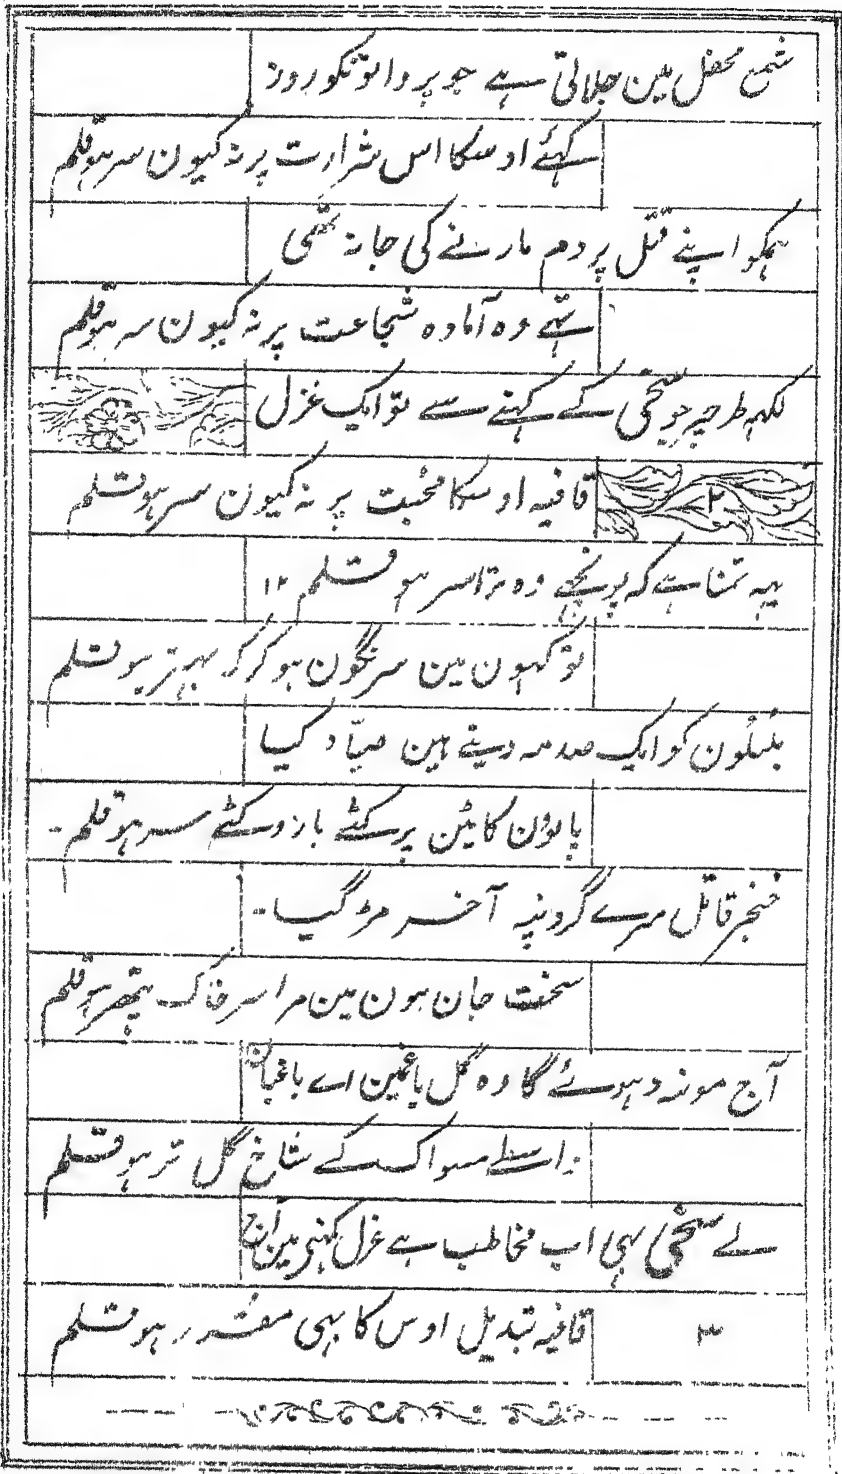 شمع محفل مین جلاتی ہے جو پروانونکو روز
کہئے اوسکا اس شرارت پر نہ کیون سر ہو قلم
ہمکو اپنے قتل پر دم مارنے کی جا نہ تھی
تہے وہ آمادہ شجاعت پر نہ کیون سر ہو قلم
لکہہ طرحپر جو سخی کے کہنے سے تو ایک غزل
۲
قافیہ اوسکا محبت پر نہ کیون سر ہو قلم
یہہ تمنا ہے کہ پونچہے وہ مرا سر ہو قلم ۱۲
تو کہون مین سرنگون ہو کر کہ بہتر ہو قلم
بلبلون کو ایک صدمہ دیتے ہین صیّاد کیا
پاؤن کاٹین پر کٹے بازو کٹے سر ہو قلم۔
خنجر قاتل مرے گردنپہ آخر مڑ گیا۔
سخت جان ہون مین مرا سر خاک پتھر ہو قلم
آج مونہ دہوئے گا وہ گل باغمین اے باغبان
واسطے مسواک کے شاخ گل تر ہو قلم
اے سخی بہی اب مخاطب ہے غزل کہنی مین آج
۳
قافیہ تبدیل اوس کا بہی مقدر ہو قلم